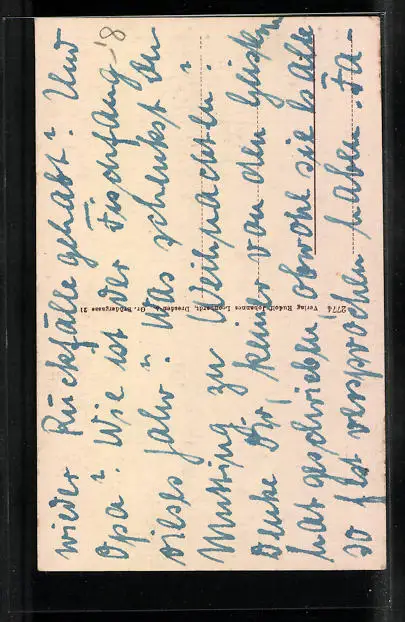 wieder Rückfälle gehabt? Und
Opa? Wie ist der Fischfang
dieses Jahr? Was schenkst Du
Mutting zu Weihnachten?
Denke Dir! keiner von den
hat geschrieben! obwohl sie es alle
so fest versprochen haben.
2774 Verlag Rudolf Johannes Leonhardt, Dresden-A. Gr. Brüdergasse 21